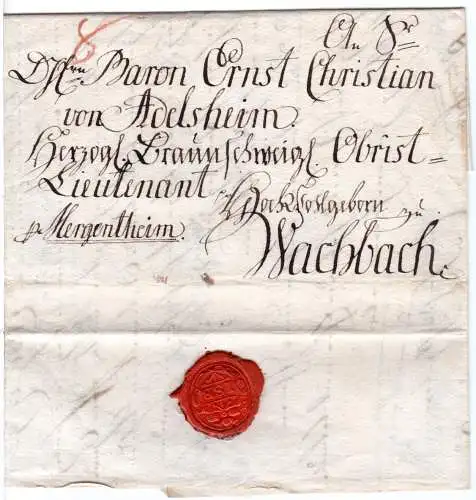 8
An Sr
D. Hrn. Baron Ernst Christian
von Adelsheim
Herzogl. Braunschweigl. Obrist-
Lieutenant Hochwohlgeborn zu
p. Mergentheim. Wachbach.